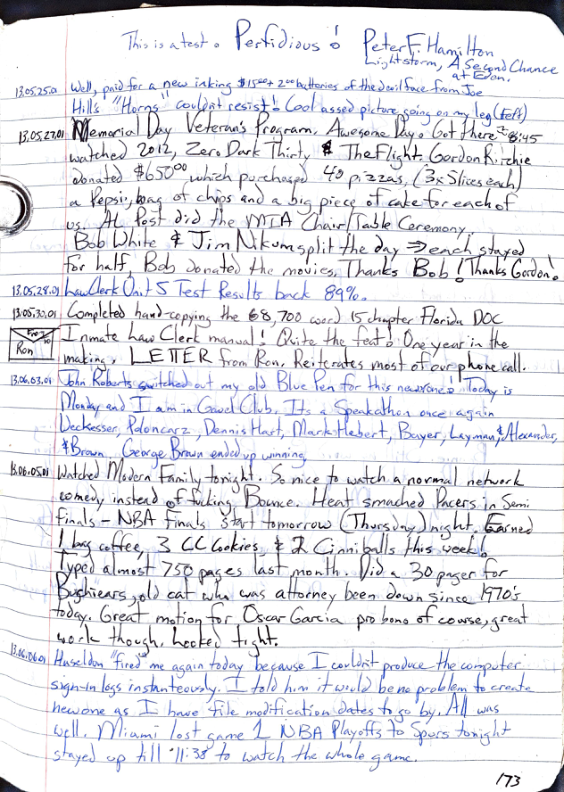 This is a test. Perfidious! Peter F. Hamilton
Lightstorm, A Second Chance
at Eden.
13.05.25.01 Well, paid for a new inking $15.00 + 2.00 batteries of the devil face from Joe
Hill's "Horns" couldn't resist! Cool assed picture going on my leg (left)
13.05.27.01 Memorial Day Veteran's Program. Awesome Day. Got there 8:45
watched 2012, Zero Dark Thirty & The Flight. Gordon Ritchie
donated $650.00 which purchased 40 pizzas, (3x Slices each)
a Pepsi, bag of chips and a big piece of cake for each of
us. AL Post did the MIA Chair/Table Ceremony.
Bob White & Jim Nikum split the day => each stayed
for half, Bob donated the movies. Thanks Bob! Thanks Gordon!
13.05.28.01 Law Clerk Unit 5 Test Results back 89%.
13.05.30.01 Completed hand-copying the 68,700 word 15 chapter Florida DOC
Inmate Law Clerk manual! Quite the feat! One year in the
Ron
making. LETTER from Ron, Reiterates most of our phone call.
13.06.03.01 John Roberts switched out my old Blue Pen for this new one. Today is
Monday and I am in Gavel Club. Its a Speakathon once again
Deckesser, Poloncarz, Dennis Hart, Mark Hebert, Bayer, Layman, & Alexander,
& Brown. George Brown ended up winning
13.06.05.01 Watched Modern Family tonight. So nice to watch a normal network
comedy instead of fucking Bounce. Heat smached Pacers in Semi
finals - NBA Finals start tomorrow (Thursday) night. Earned
1 bag coffee, 3 CC Cookies & 2 Cinniballs this week!
Typed almost 750 pages last month. Did a 30 pager for
old cat who was attorney been down since 1970's
today. Great motion for Oscar Garcia pro bono of course, great
work though. Looked tight.
13.06.06.01 Huseldon "fired" me again today because I couldn't produce the computer
sign-in logs instanteously. I told him it would be no problem to create
new one as I have file modification dates to go by. All was
well. Miami lost game 1 NBA Playoffs to Spurs tonight
stayed up till 11:38 to watch the whole game.
173